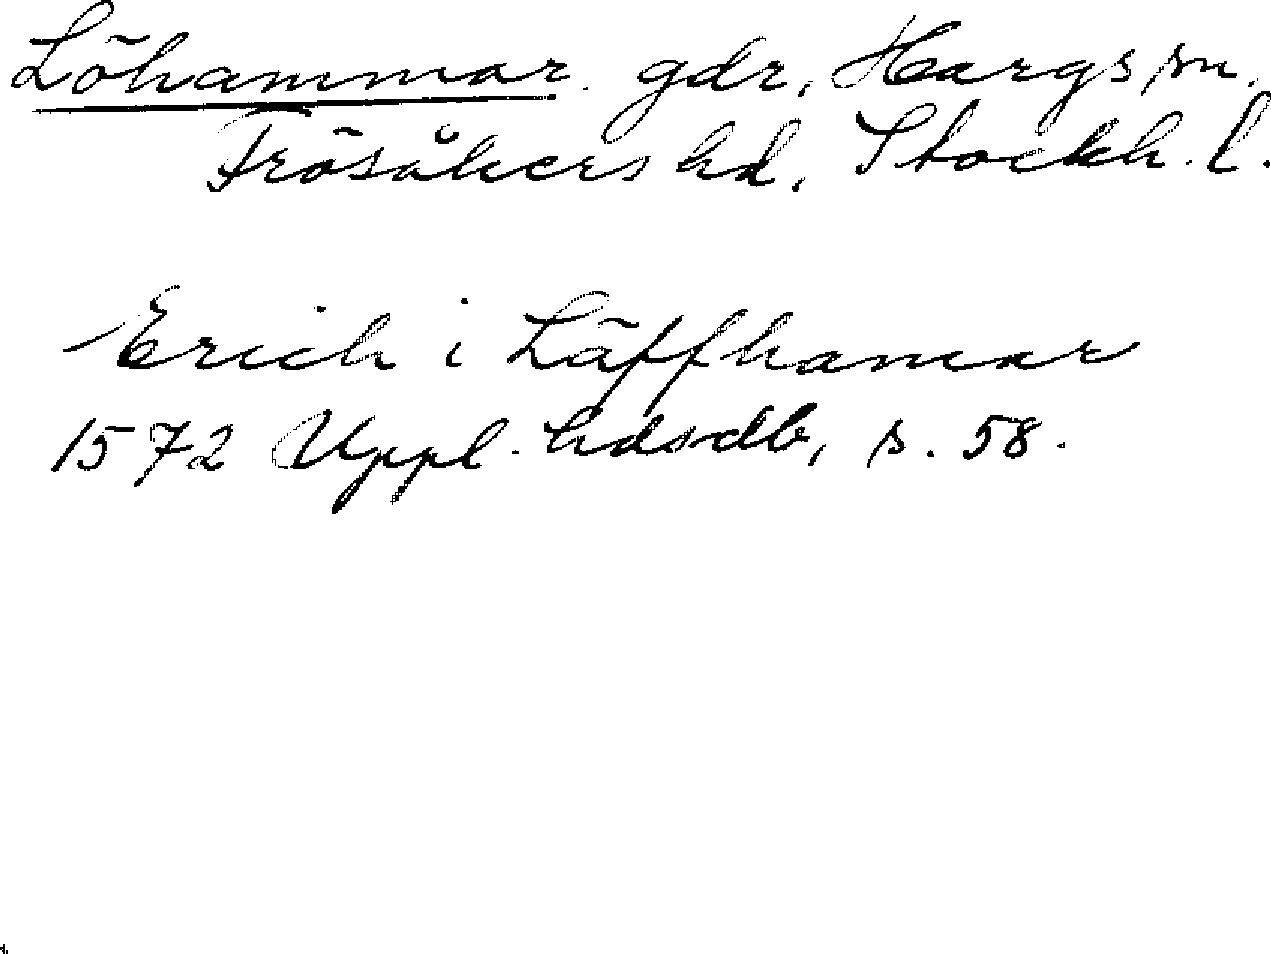 Löhammar. gdr, Hargs sn,
Frösåkers hd, Stockh. l.
Erich i Läffhamar
1572 Uppl. hdsdb, s. 58.